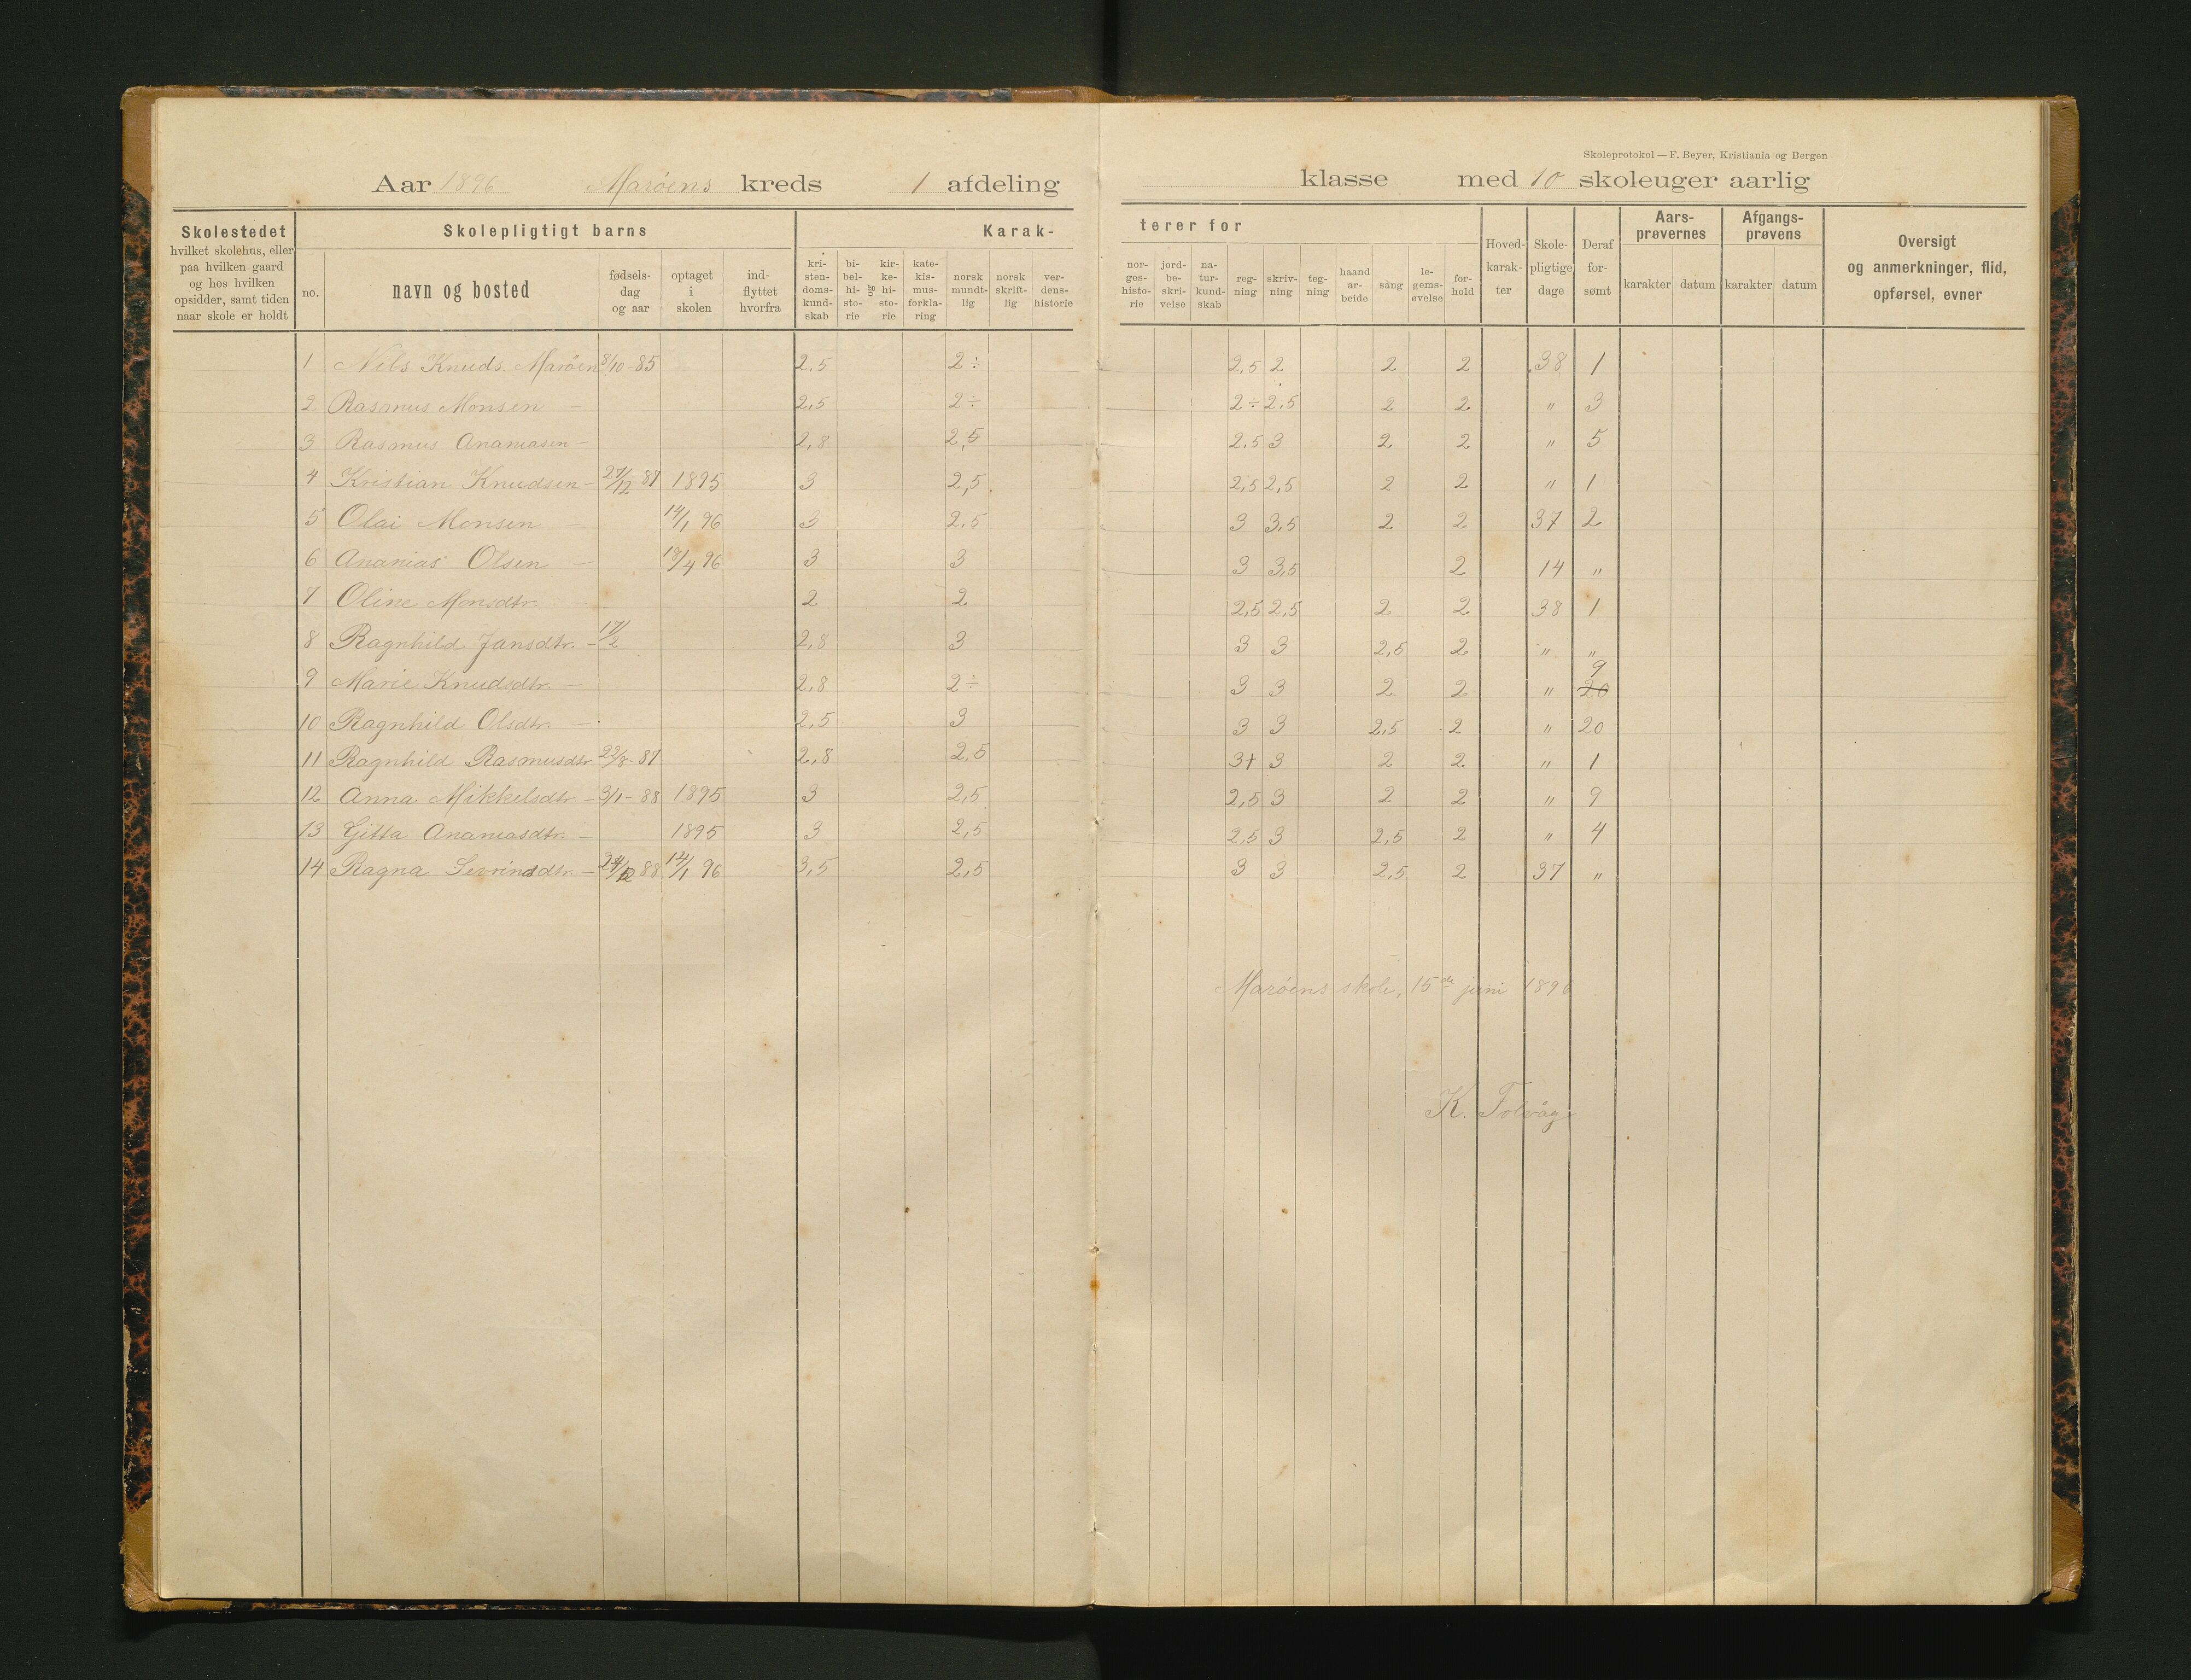 Skoleprotokol — F. Beyer, Kristiania og Bergen
Aar 1896 Marøens kreds 1 afdeling klasse med 10 skoleuger aarlig
Skolestedet
hvilket skolehus, eller
paa hvilken gaard
og hos hvilken
opsidder, samt tiden
naar skole er holdt
Skolepligtigt barns
no.
navn og bosted
fødsels-
dag
og aar
optaget
i
skolen
ind-
flyttet
hvorfra
Karak-
kri-
sten-
doms-
kund-
skab
bi-
bel-
hi-
sto-
rie
og
kir-
ke-
hi-
sto-
rie
kate-
kis-
mus-
forkla-
ring
norsk
mundt-
lig
norsk
skrift-
lig
ver-
dens-
historie
terer for
nor-
ges-
histo-
rie
jord-
be-
skri-
velse
na-
tur-
kund-
skab
reg-
ning
skriv-
ning
teg-
ning
haand
ar-
beide
sang
le-
gems-
øvelse
for-
hold
Hoved-
karak-
ter
Skole-
pligtige
dage
Deraf
for-
sømt
Aars-
prøvernes
karakter datum
Afgangs-
prøvens
karakter datum
Oversigt
og anmerkninger, flid,
opførsel, evner
1 Nils Knuds. Marøen 8/10-85 2,5 2÷ 2,5 2 2 2 38 1
2 Rasmus Monsen — 2,5 2÷ 2÷ 2,5 2 2 " 3
3 Rasmus Ananiasen — 2,8 2,5 2,5 3 2 2 " 5
4 Kristian Knudsen — 27/12 87 1895 3 2,5 2,5 2,5 2 2 " 1
5 Olai Monsen — 14/1 96 3 2,5 3 3,5 2 2 37 2
6 Ananias Olsen — 18/4 96 3 3 3 3,5 2 14 "
7 Oline Monsdtr. — 2 2 2,5 2,5 2 2 38 1
8 Ragnhild Jansdtr. — 17/2 2,8 3 3 3 2,5 2 " "
9 Marie Knudsdtr. — 2,8 2÷ 3 3 2 2 " 20 9
10 Ragnhild Olsdtr. — 2,5 3 3 3 2,5 2 " 20
11 Ragnhild Rasmusdtr. 22/8-87 2,8 2,5 3+ 3 2 2 " 1
12 Anna Mikkelsdtr. — 3/1-88 1895 3 2,5 2,5 3 2 2 " 9
13 Gitta Ananiasdtr. — 1895 3 2,5 2,5 3 2,5 2 " 4
14 Ragna Sevrinsdtr. — 24/12 88 14/1 96 3,5 2,5 3 3 2,5 2 37 "
Marøens skole, 15de juni 1896
K. Tolvåg